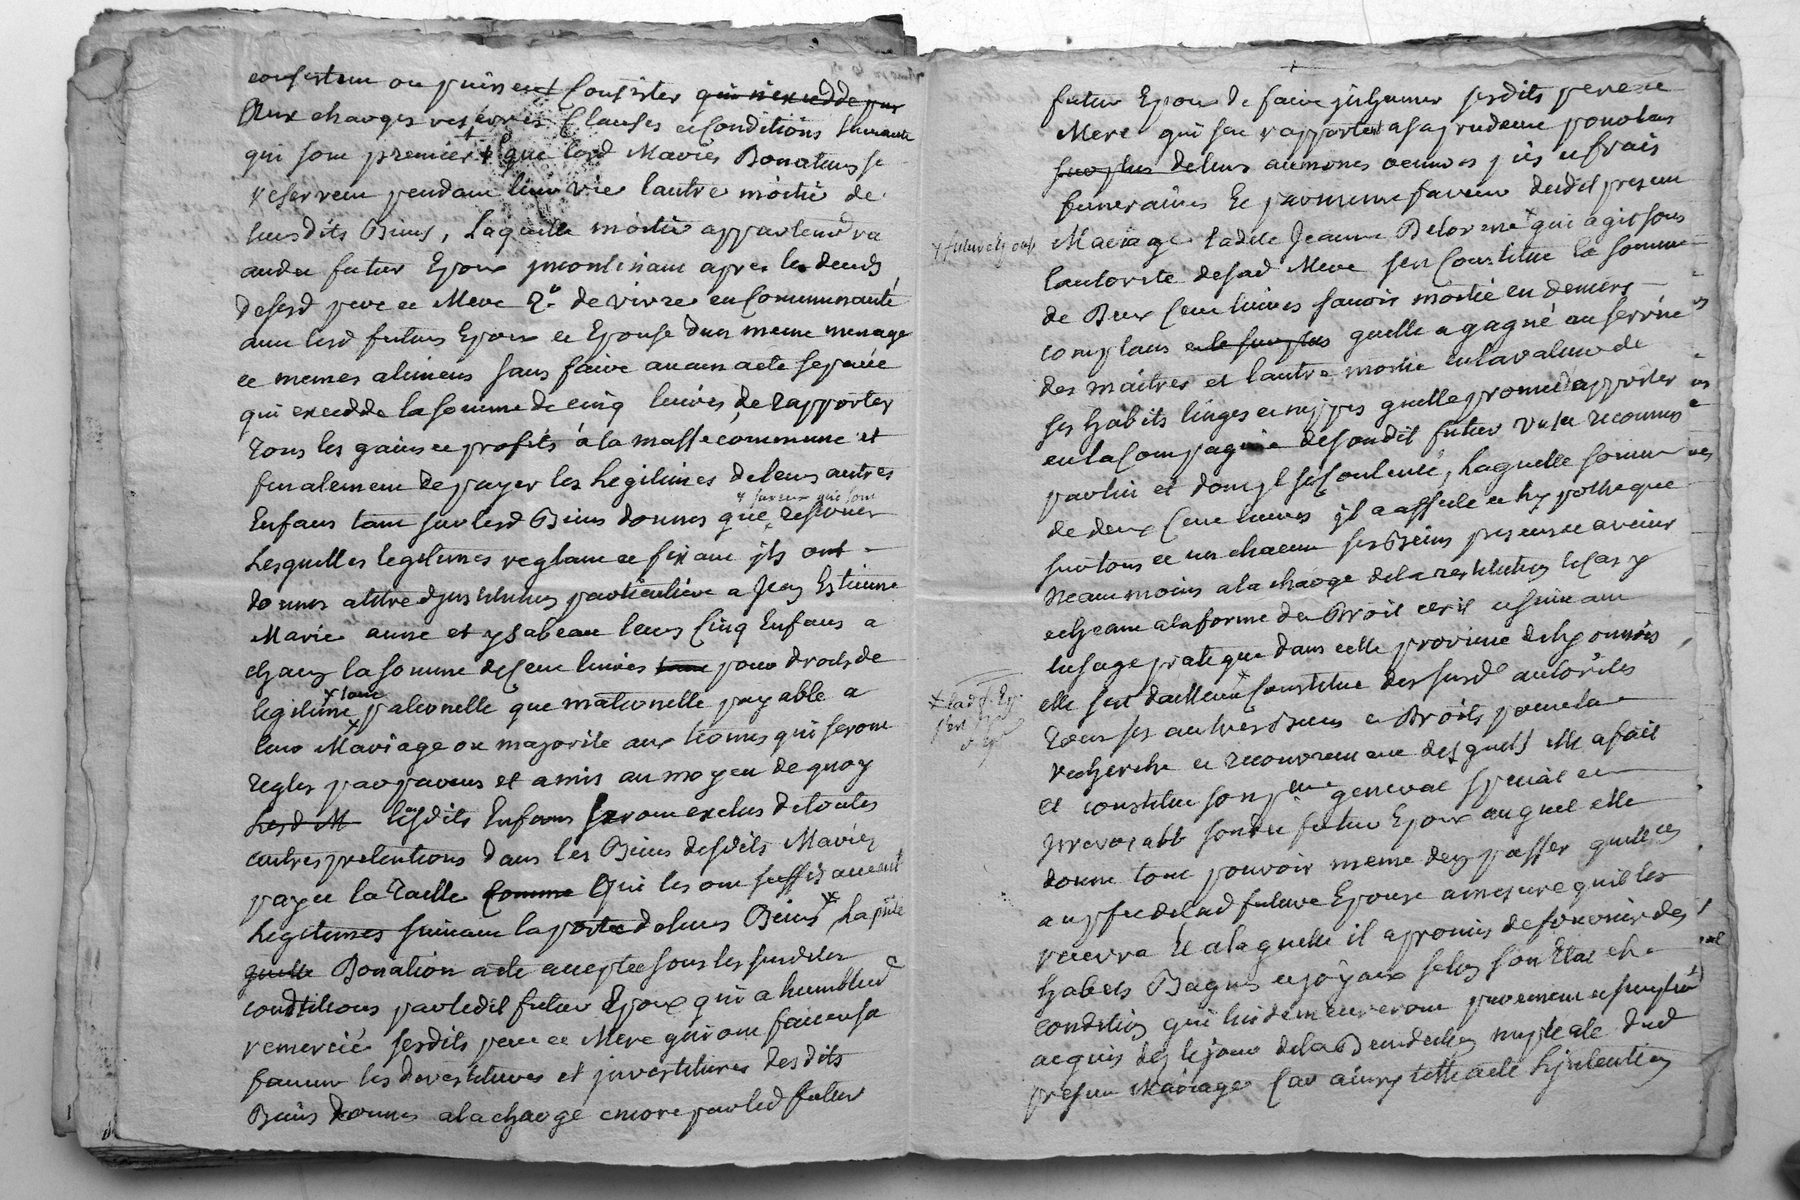 consistent ou puissent Consister qui n'excedde pas
Aux charges reserves Clauses et conditions suivante
qui sont premiert que lesd Mariés Donateurs se
reservent pendant leur vie l'autre moitié de
leursdits Biens, Laquelle moitié appartiendra
audit futur Epoux incontinant apres le deces
desesd pere et Mere 2o. de vivre en Communauté
avec lesd futurs Epoux et Epouse d'un meme menage
et memes alimens sans faire aucun acte separée
qui excedde la somme de cinq livres de rapporter
tous les gains et profits à la masse commune et
finalement de payer les Legitimes de leurs autres
x sur eux que sont
Enfans tant sur lesd Biens donnés que reservés
Lesquelles legitimes reglant et fixant ils ont
donnés a titre d'institution particuliere a Jean Estienne
Marie anne et ysabeau leurs Cinq Enfans a
chacun la somme de Cent livres tant pour droits de
x tant
legitime paternelle que maternelle payable a
leur Mariage ou majorité aux termes qui seront
regles par parens et amis au moyen de quoy
Lesd M lesdits Enfans seront exclus de toutes
autres pretentions dans les Biens desdits Mariés
payer la Taille Comme Qui les ont suffisament
Legitimes suivant la porté de leurs Biens x La pnte
quelle Donation a ete acceptée sous les susdites
conditions par ledit futur Epoux qui a humblemt
remercié sesdits pere et Mere qui ont fait en sa
faveur les devestitures et investitures desdits
Biens donnés a la charge encore par led futur
futur Epoux de faire inhumer sesdits pere et
Mere qui s'en rapportent a sa prudence pour leurs
surplus de leurs aumones oeuvres pies et frais
funeraires Et par meme faveur dudit present
x future Epouse
Mariage ladite Jeanne Delorme x qui agit sous
l'autorité de sad Mere s'est Constitué la somme
de Deux Cent livres sauoir moitié en deniers
comptans et le surplus quelle a gagné au service
des maitres et l'autre moitié en la valeur de
ses habits linges et nippes quelle promet d'apporter
en la Compagnie de sondit futur vu et reconnus
par lui et dont il se Contente, Laquelle somme
de deux Cent livres il a affecté et hypotheque
sur tous et un chacun ses Biens presens et avenir
Neanmoins a la charge de la restitution le cas y
echeant a la forme du Droit ecrit et suivant
l'usage pratique dans cette province de Lyonnois
x lad f. Ep
elle s'est d'ailleurs x Constitué des susd autorités
Tous ses autres Biens et Droits pour la
recherche et recouvrement desquels elle a fait
et constitué son pr general special et
Irrevocable sondit futur Epoux auquel elle
donne tout pouvoir meme d'en passer quittances
au pfit delad future Epouse a mesure quil les
recevra Et a laquelle il a promis de fournir des
habits Bagues et joyaux selon son Etat et
condition qui lui demeureront purement et simplemt
acquis des le jour de la Benediction nuptiale dud
present Mariage Car ainsy telle a ete L'intention